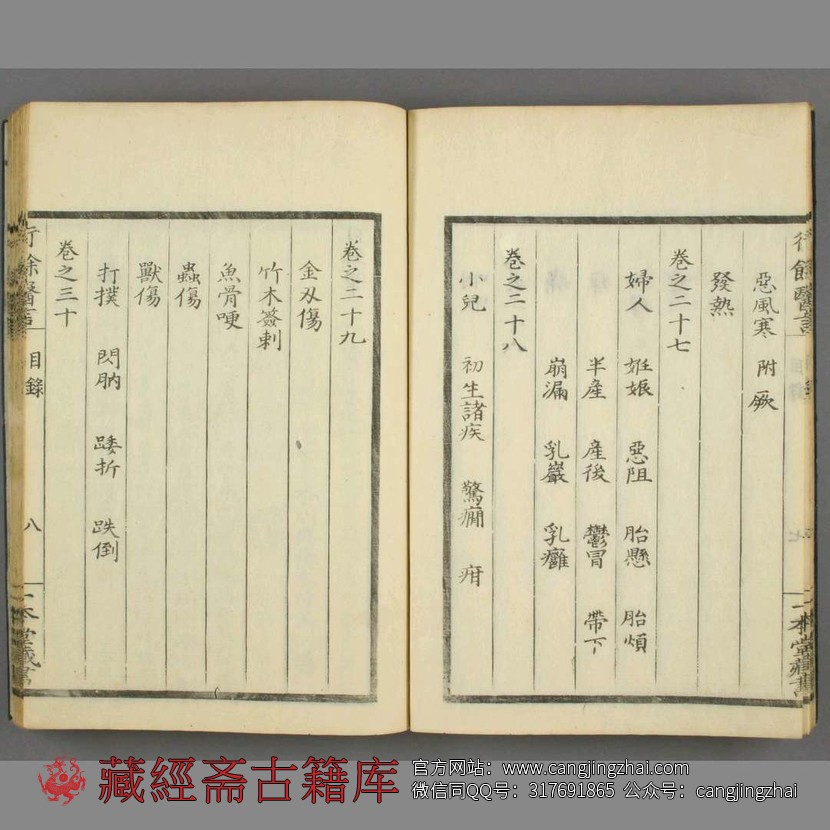 惡風寒 附厥
發熱
卷之二十七
婦人 姙娠 惡阻 胎懸 胎煩
半產 產後 鬱冒 帶下
崩漏 乳巖 乳癰
卷之二十八
小兒 初生諸疾 驚癇 疳
卷之二十九
金刄傷
竹木簽刺
魚骨哽
蟲傷
獸傷
打撲 閃肭 踒折 跌倒
卷之三十
行餘醫言 目錄 八 一本堂藏書
藏經斋古籍库
官方网站：www.cangjingzhai.com
微信同QQ号：317691865 公众号：cangjingzhai